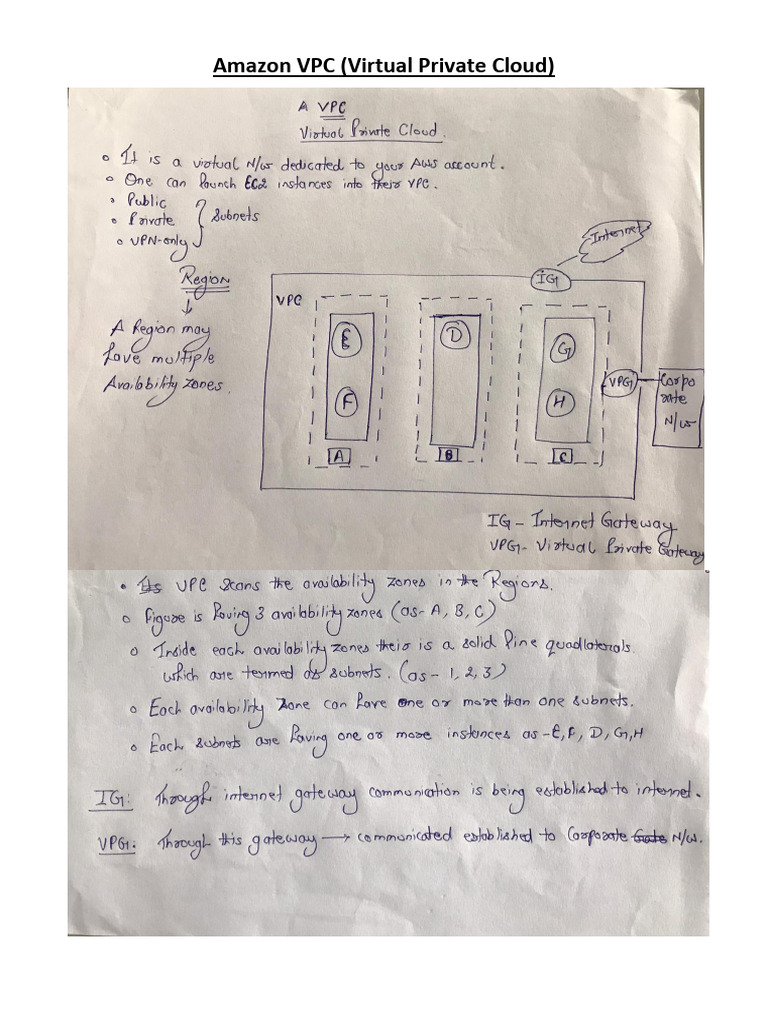 Amazon VPC (Virtual Private Cloud)
A VPC
Virtual Private Cloud.
It is a virtual N/w dedicated to your AWS account.
One can launch EC2 instances into their VPC.
Public
Private
VPN-only
Subnets
Region
A Region may
have multiple
Availability zones.
Internet
IG
VPC
E
F
D
G
H
A
B
C
VPG
Corpo
rate
N/w
IG - Internet Gateway
VPG - Virtual Private Gateway
Its VPC Scans the availability zones in the Regions.
Figure is having 3 availability zones (as- A, B, C)
Inside each availability zones their is a solid line quadlaterals.
which are termed as subnets. (as - 1, 2, 3)
Each availability Zone can have one or more than one subnets.
Each subnets are having one or more instances as -E, F, D, G, H
IG: Through internet gateway communication is being established to internet.
VPG: Through this gateway → communicated established to Corporate Gate N/w.